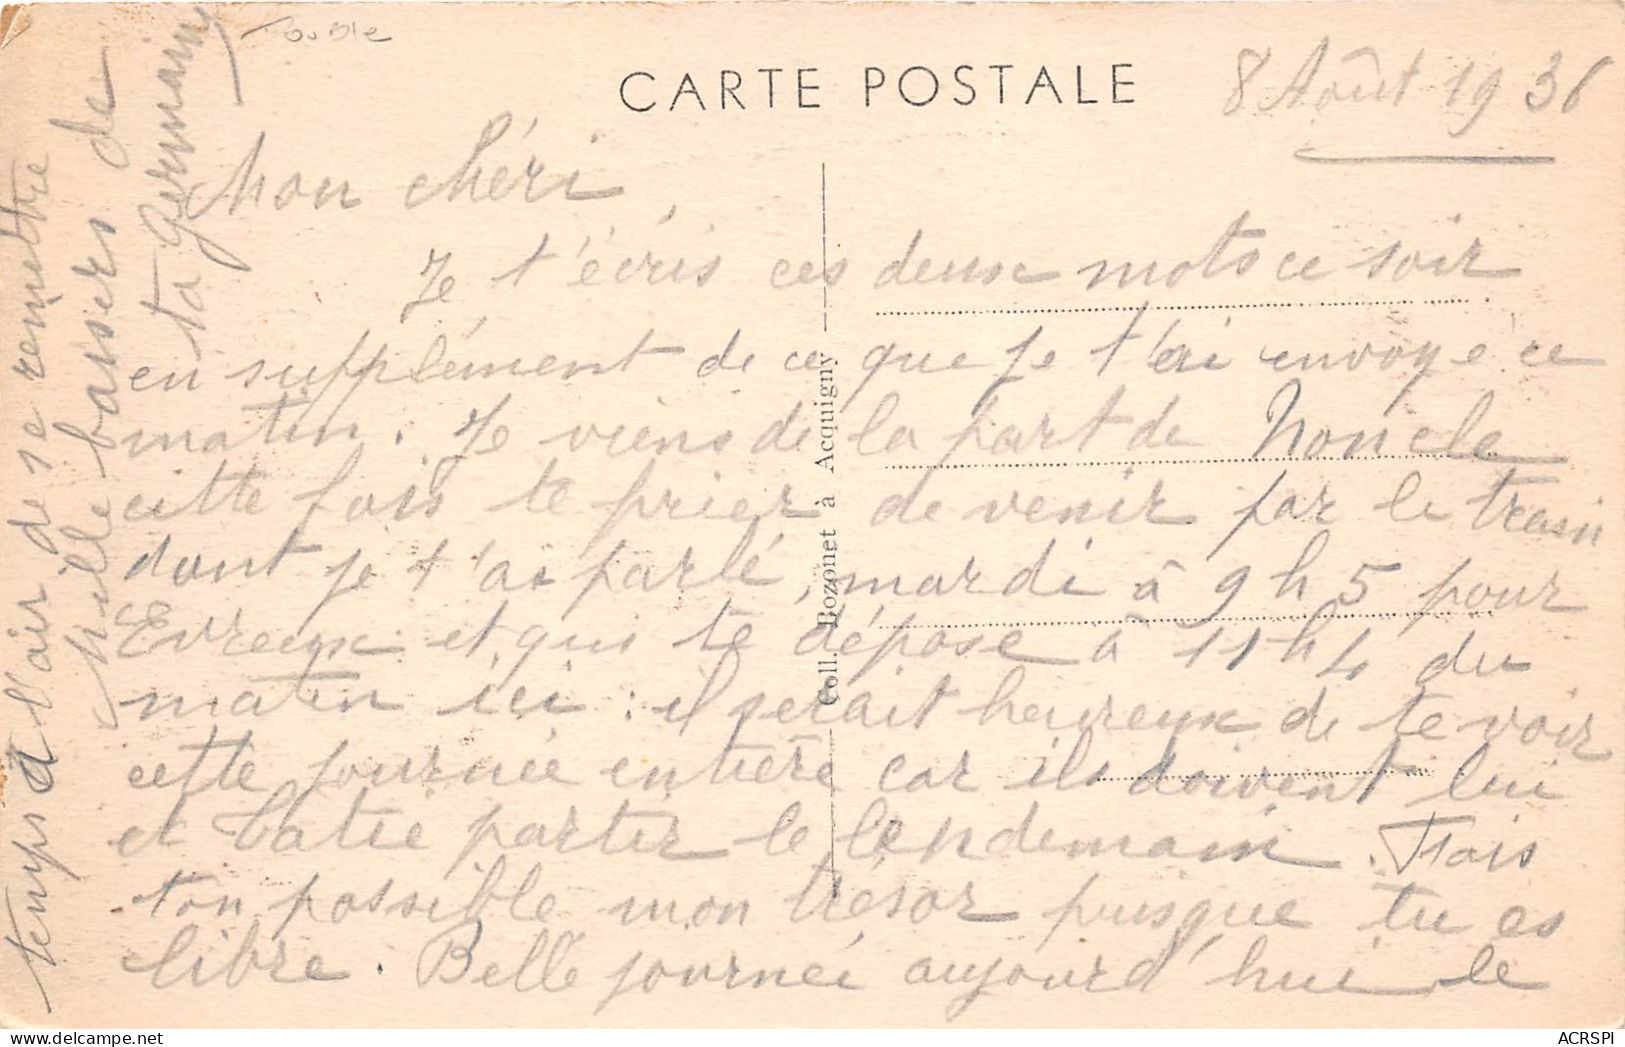 Double
CARTE POSTALE
8 Août 1936
Mon chéri,
Je t'écris ces deux mots ce soir
en supplément de ce que je t'ai envoye ce
matin. Je viens de la part de Noncle
cette fois te prier de venir par le train
dont je t'ai parlé, mardi à 9h5 pour
Evreux et qui te dépose à 11h4 du
matin ici : il serait heureux de te voir
cette journée entière car ils doivent lui
et Catie partir le lendemain. Fais
ton possible mon trésor puisque tu es
libre. Belle journée aujourd'hui le
temps a l'air de se remettre
Mille baisers de
ta Germaine
Coll. Bozonet à Acquigny
ACRSPI